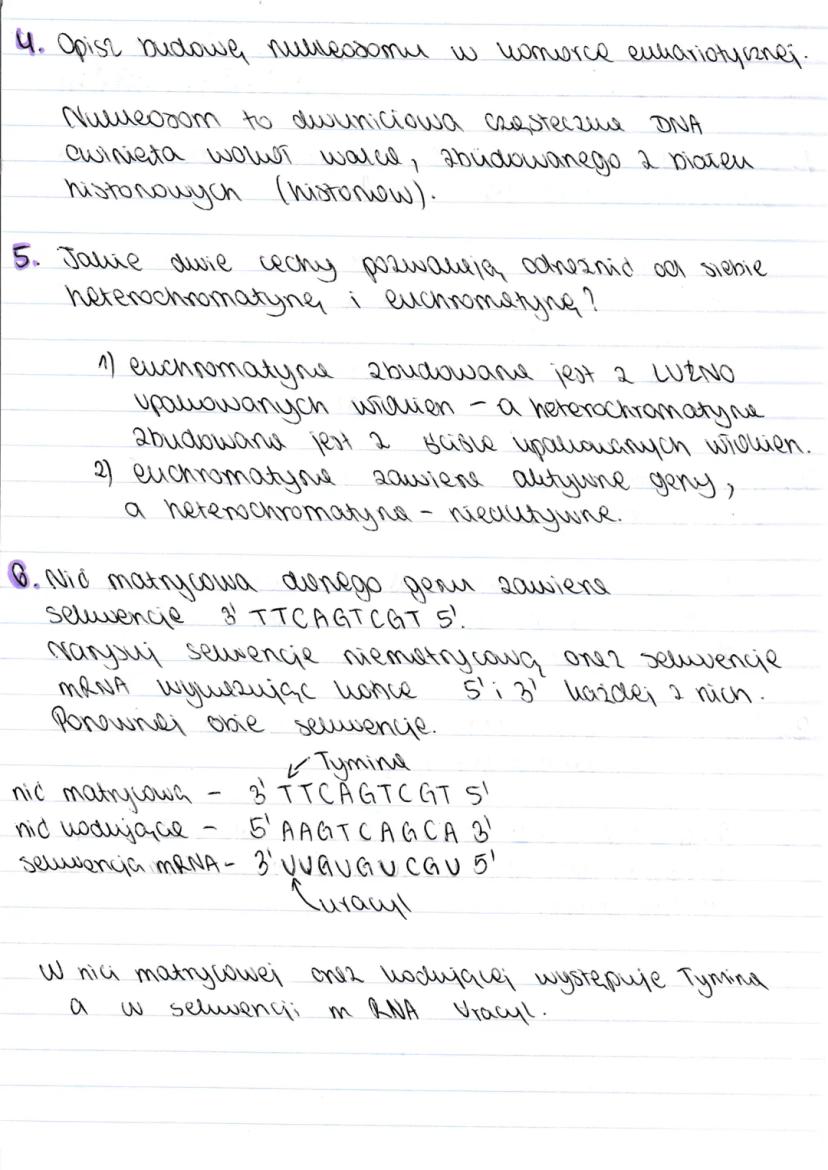 4. Opisz budowę nukleosomu w komórce eukariotycznej.
Nukleosom to dwuniciowa cząsteczka DNA
owinięta wokół walca, zbudowanego z białek
histonowych (histonów).
5. Jakie dwie cechy pozwalają odróżnić od siebie
heterochromatynę i euchromatynę?
1) euchromatyna zbudowana jest z LUŹNO
upakowanych włókien - a heterochromatyna
zbudowana jest z ściśle upakowanych włókien.
2) euchromatyna zawiera aktywne geny,
a heterochromatyna - nieaktywne.
6. Nić matrycowa danego genu zawiera
sekwencje 3' TTCAGTCGT 5'.
Narysuj sekwencje niematrycową oraz sekwencje
mRNA wykazując końce 5' i 3' każdej z nich.
Porównaj obie sekwencje.
↙ Tymina
nić matrycowa - 3' TTCAGTCGT 5'
nić kodująca - 5' AAGTCAGCA 3'
sekwencja mRNA - 3' UUGUGUCGU 5'
uracyl
W nici matrycowej oraz kodującej występuje Tymina
a w sekwencji m RNA Uracyl.